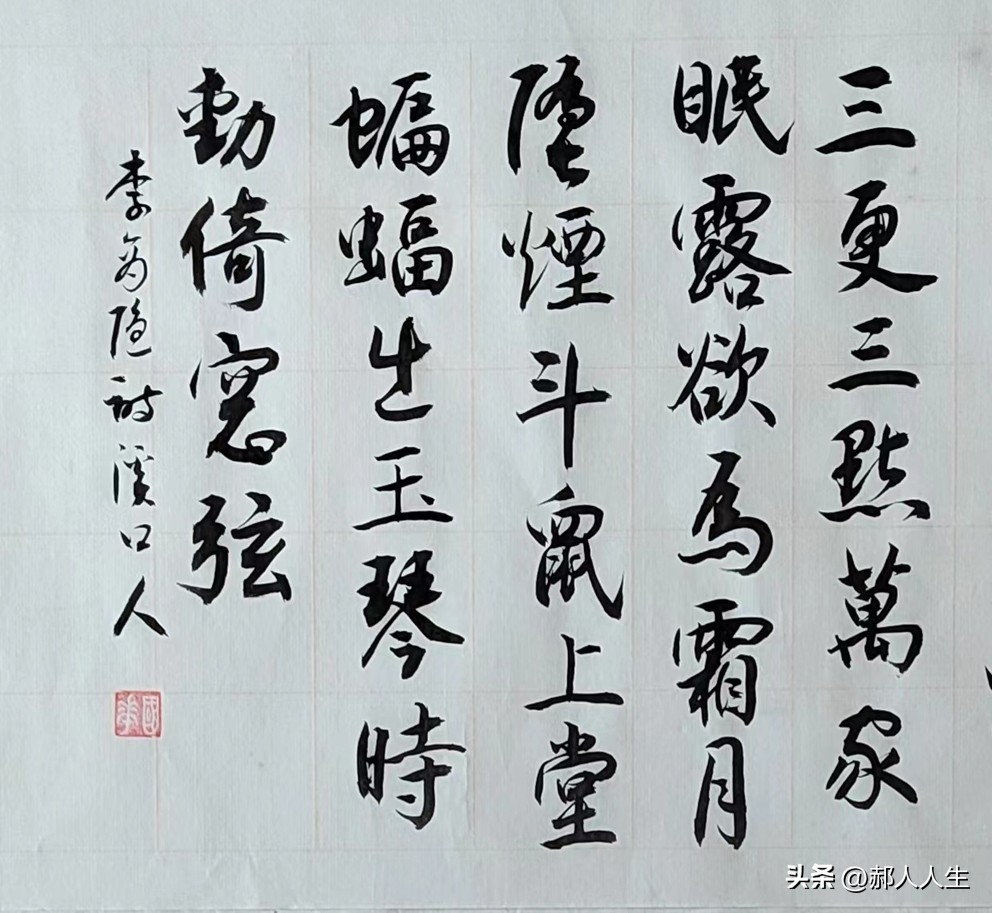 三更三點萬家
眠露欲為霜月
墮煙斗鼠上堂
蝙蝠出玉琴時
動倚窓弦
李商隐詩溪口人
头条 @郝人人生